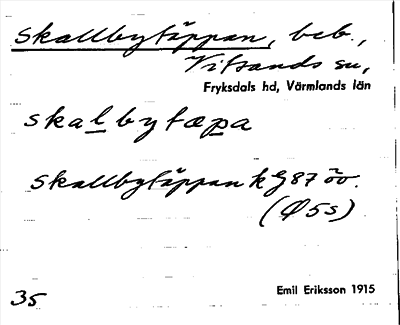 Skallbytäppan, beb.,
Vitsands sn,
Fryksdals hd, Värmlands län
skalbytæpa
Skallbytäppan k G87 öv.
(Ø5s)
35
Emil Eriksson 1915